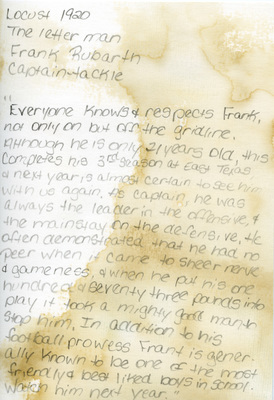 Locust 1920
The letter man
Frank Rubarth
Captain-tackle
"
Everyone knows & respects Frank,
not only on but off the gridline.
Although he is only 21 years old, this
completes his 3rd season at East Texas
& next year is almost certain to see him
with us again. As captain, he was
always the leader in the offensive, &
the mainstay on the defensive. He
often demonstrated that he had no
peer when it came to sheer nerve
& gameness, & when he put his one
hundred & seventy three pounds into
play it took a mighty good man to
stop him. In addition to his
football prowess Frank is gener-
ally known to be one of the most
friendly & best liked boys in school.
Watch him next year."